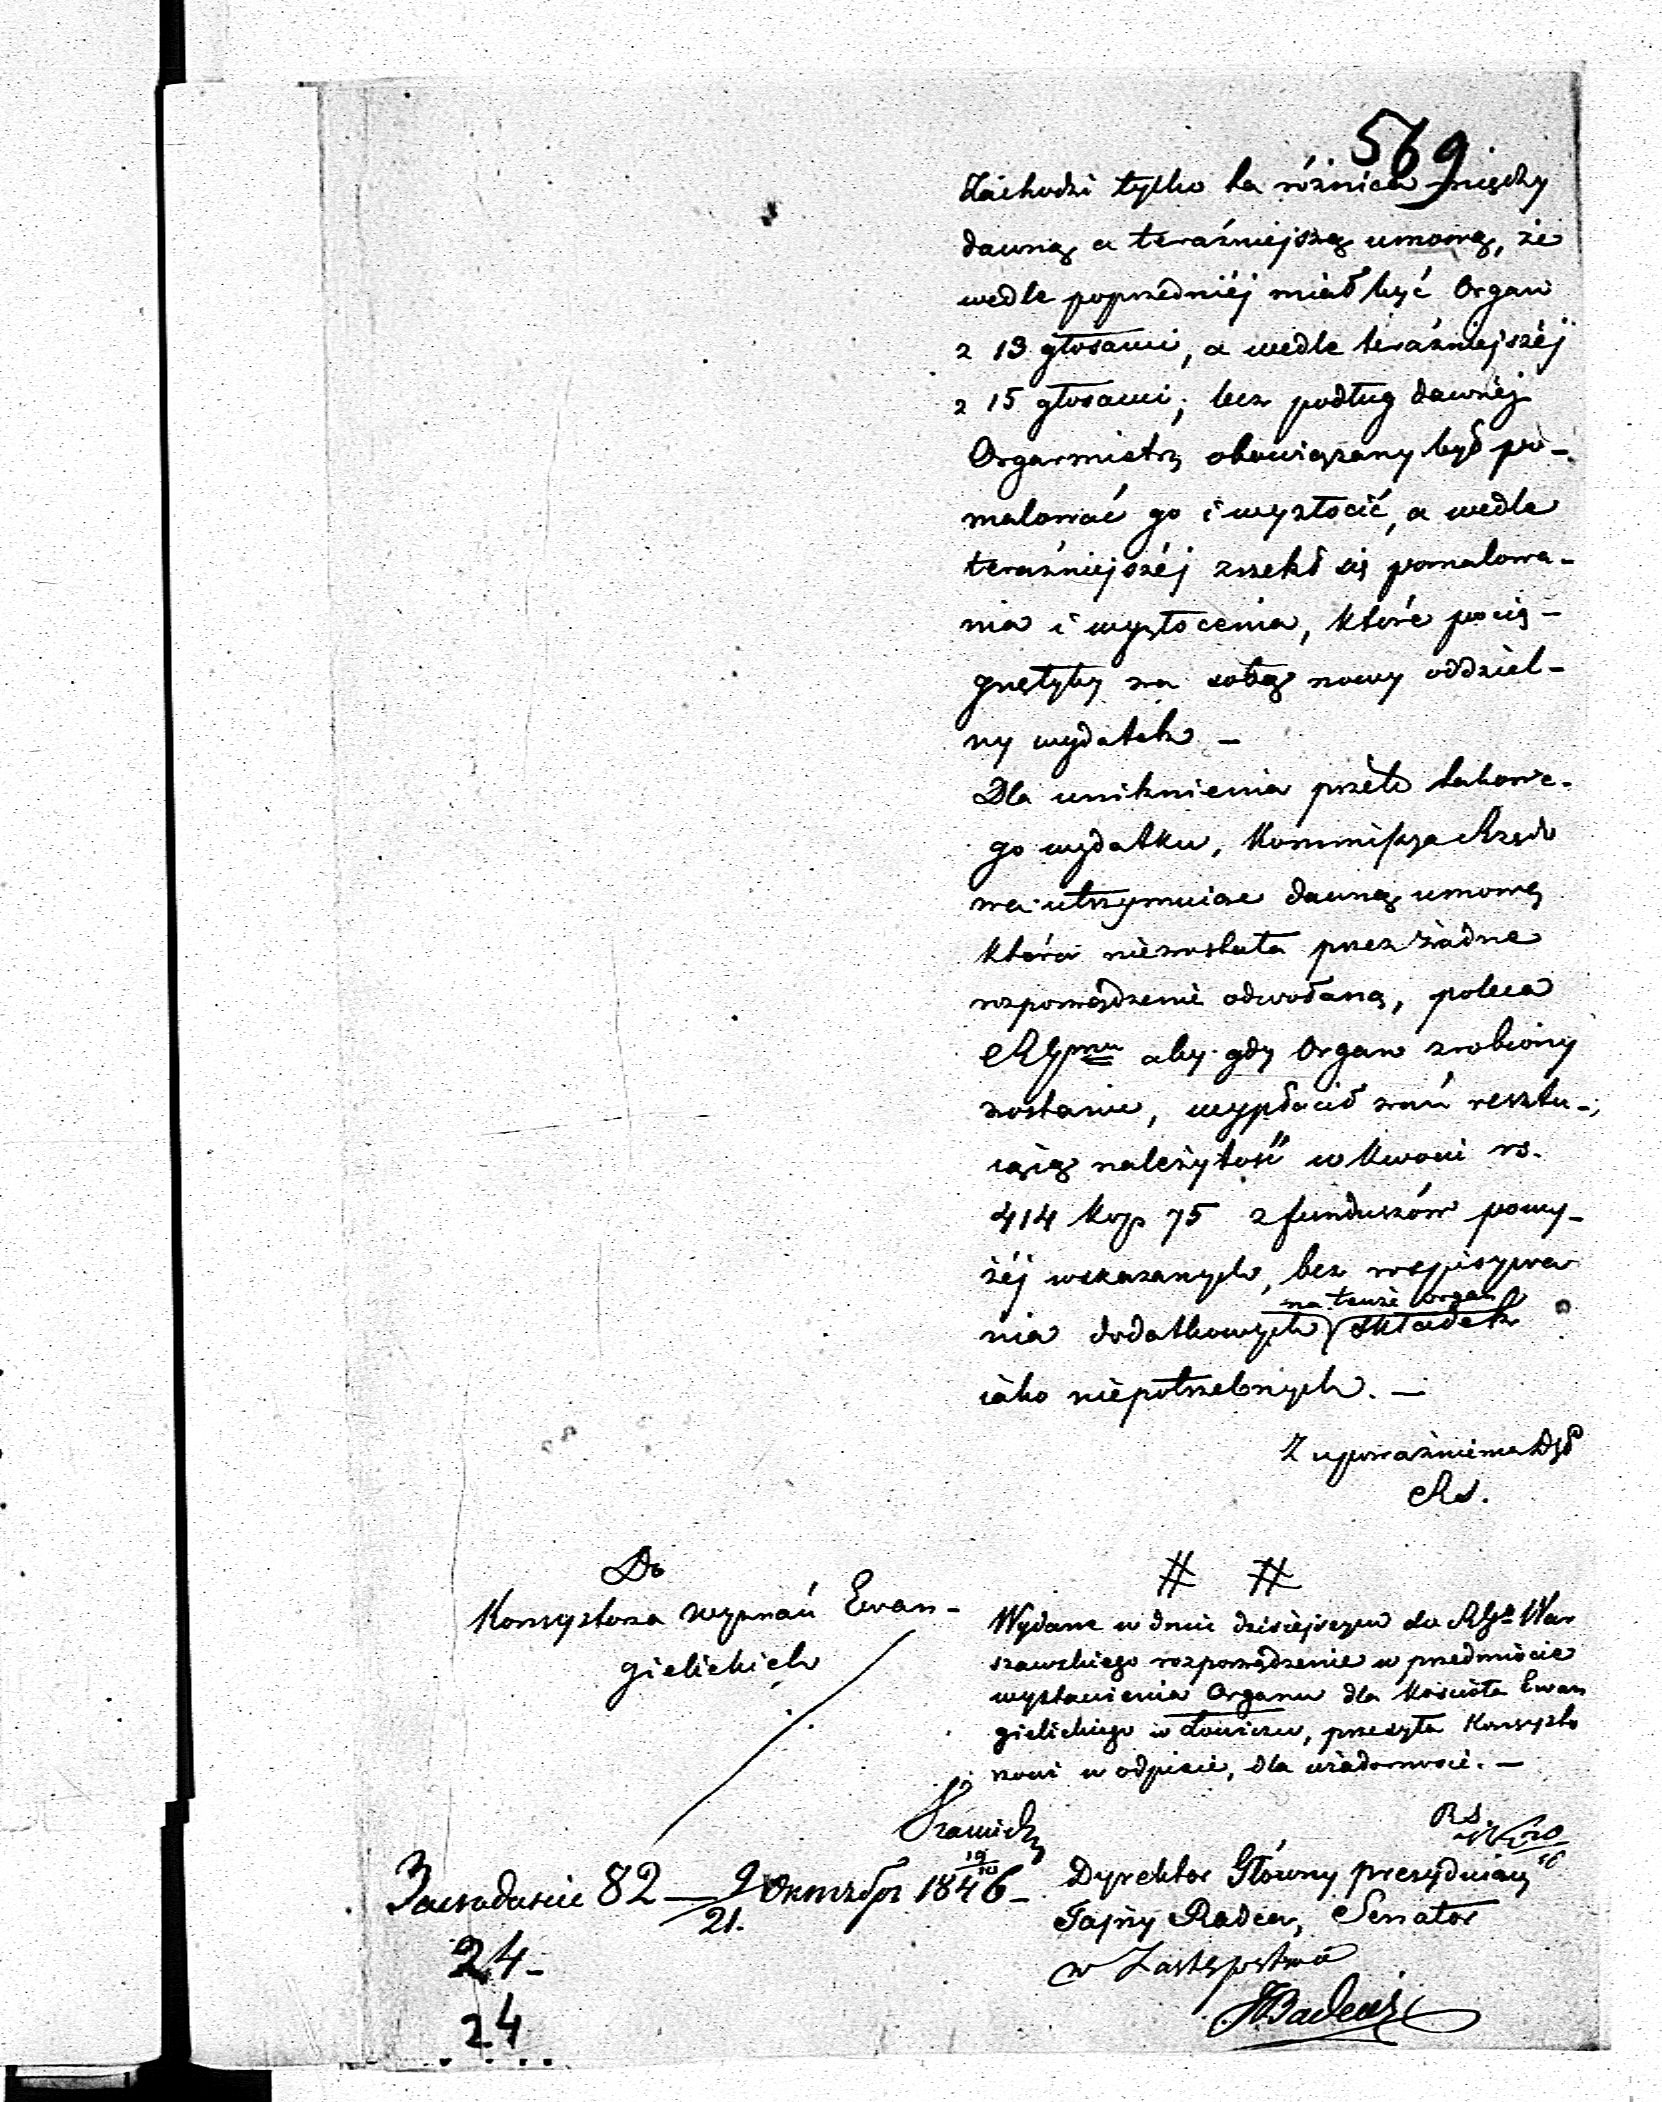 569.
Zachodzi tylko ta różnica między
dawną a teraźniejszą umową, że
wedle poprzedniéj miał być Organ
z 13 głosami, a wedle teraźniejszéj
z 15 głosami; lecz podług dawnéj
Organmistrz obowiązany był po-
malować go i wyzłocić, a wedle
teraźniejszéj zrzekł się pomalowa-
nia i wyzłocenia, które pocią-
gnęłyby za sobą nowy oddziel-
ny wydatek –
Dla uniknienia przeto takowe-
go wydatku, Kommissya Rządo
wa utrzymuiąc dawną umowę
która niezostała przez żadne
rozporządzenie odwołaną, poleca
RGmu aby gdy Organ zrobiony
zostanie, wypłacił zań resztu-
iącą należytość w kwocie rs.
414 kop 75 z funduszów powy-
żéj wskazanych, bez rozpisywa
na tenże organ
nia dodatkowych składek
iako niepotrzebnych. –
Z upoważnienia
RS.
Do
Konsystorza wyznań Ewan-
gielickich
# #
Wydane w dniu dzisiejszym do RGu War
szawskiego rozporządzenie w przedmiocie
wystawienia Organu dla Kościoła Ewan
gielickiego w Łowiczu, przesyła Konsysto
rzowi w odpisie, dla wiadomości. –
RS.
19/10
82 – 9/21. Октября 1846 –
Dyrektor Główny prezyduiący
Tajny Radca, Senator
w Zastępstwie
24 –
24